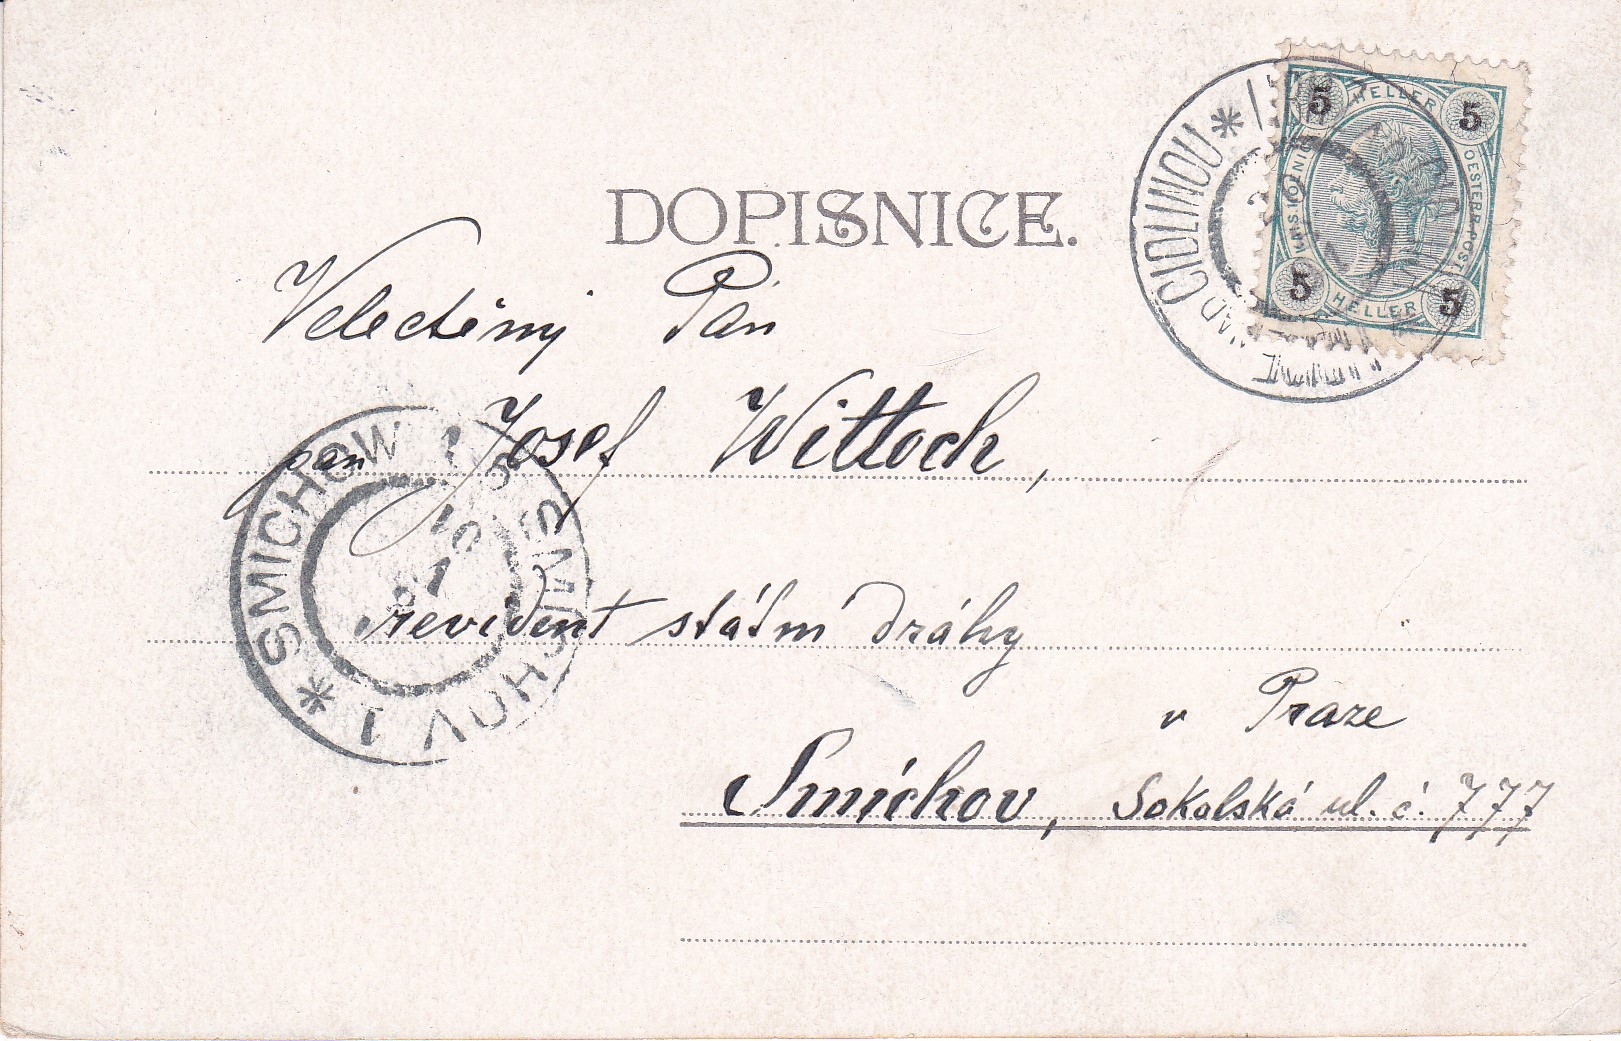 DOPISNICE.
5 HELLER 5
OESTERR. POST
5 HELLER 5
NAD CIDLINOU *
Velectěný Pán
pan Josef Wittoch,
revident státní dráhy
v Praze
Smíchov, Sokolská ul. č. 777
* SMICHOW 1
SMICHOV 1
10
1